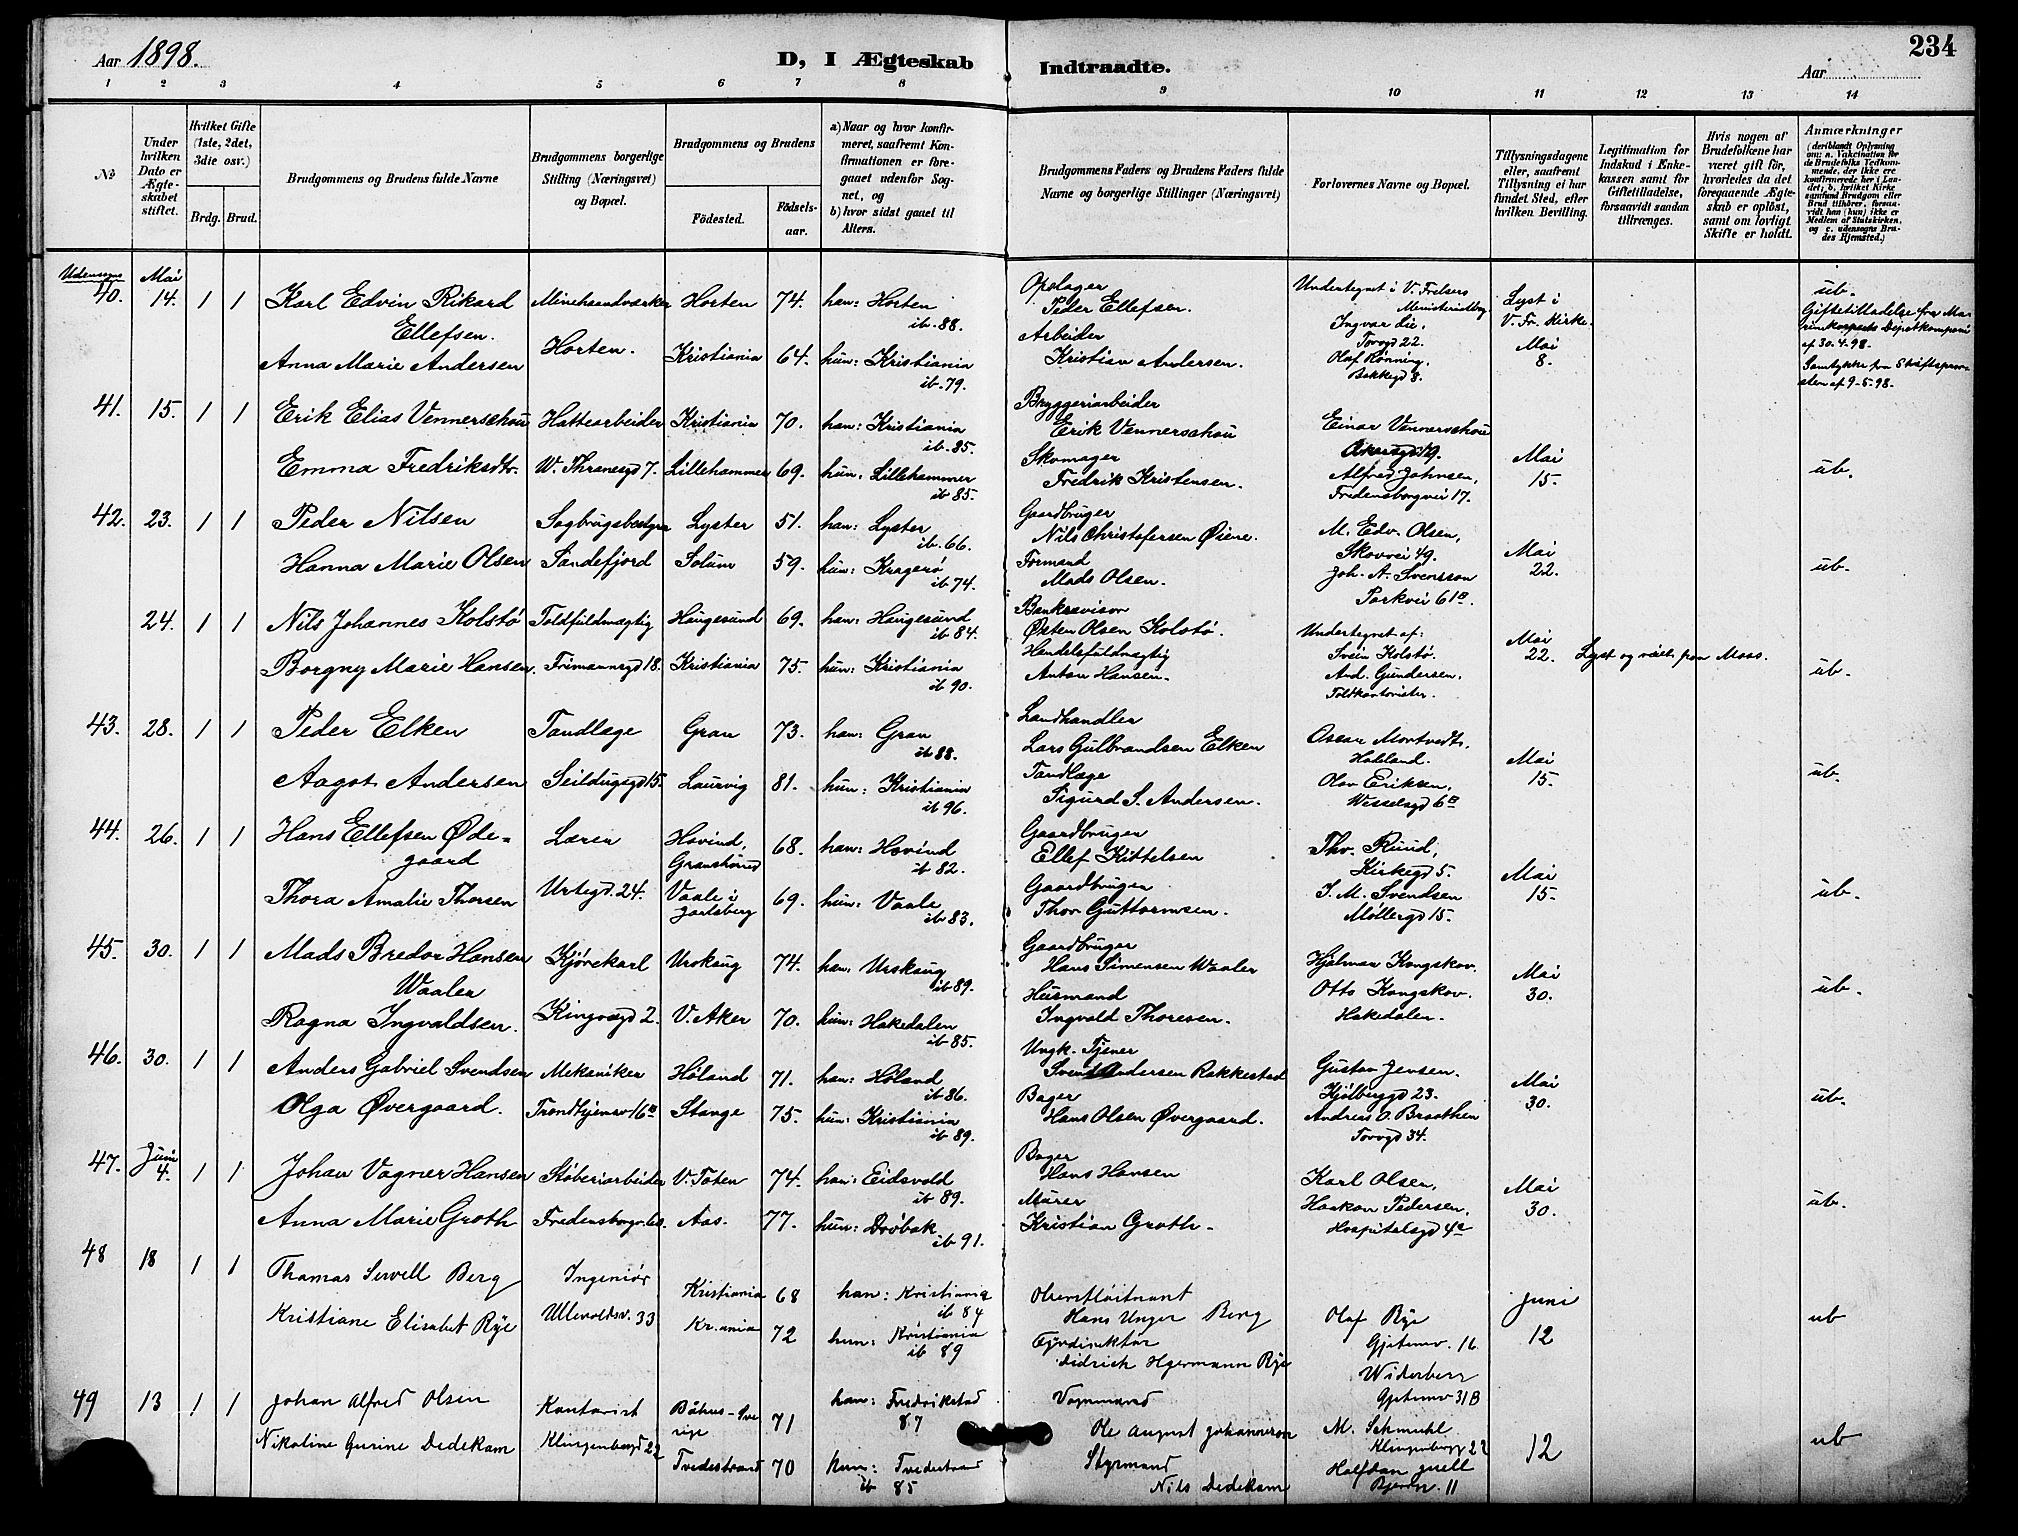 Aar 1898.
D, I Ægteskab Indtraadte.
Aar
234
1 2 3 4 5 6 7 8 9 10 11 12 13 14
No
Under hvilken Dato er Ægteskabet stiftet.
Hvilket Gifte (1ste, 2det, 3die osv.)
Brdg. Brud.
Brudgommens og Brudens fulde Navne
Brudgommens borgerlige Stilling (Næringsvei) og Bopæl.
Brudgommens og Brudens
Fødested.
Fødselsaar.
a) Naar og hvor konfirmeret, saafremt Konfirmationen er foregaaet udenfor Sognet, og
b) hvor sidst gaaet til Alters.
Brudgommens Faders og Brudens Faders fulde Navne og borgerlige Stillinger (Næringsvei)
Forlovernes Navne og Bopæl.
Tillysningsdagene eller, saafremt Tillysning ei har fundet Sted, efter hvilken Bevilling.
Legitimation for Indskud i Enkekassen samt for Giftetilladelse, forsaavidt saadan tiltrænges.
Hvis nogen af Brudefolkene har været gift før, hvorledes da det foregaaende Ægteskab er opløst, samt om lovligt Skifte er holdt.
Anmærkninger (deriblandt Oplysning om: a. Vakcination for de Brudefolks Vedkommende, der ikke ere konfirmerede her i Landet; b. hvilket Kirkesamfund Brudgom eller Brud tilhører, forsaavidt han (hun) ikke er Medlem af Statskirken, og c. udensogns Brudes Hjemsted.)
Udensogns
40. Mai 14. 1 1 Karl Edvin Rikard Ellefsen. Minehaandværker Horten 74. han: Horten ib. 88.
Opslager Peder Ellefsen. Undertegnet i V. Frelsers Ministerialbog Ingvar Lie, Torvgd 22. Lyst i V. Fr. Kirke. Mai 8. ub.
Giftetilladelse fra af 30.4.98.
Anna Marie Andersen Horten. Kristiania 64. hun: Kristiania ib. 79.
Arbeider Kristian Andersen. Olaf Rønning, Bakkegd 8.
Samtykke fra af 9-5-98.
41. 15. 1 1 Erik Elias Vennerschou Hattearbeider Kristiania 70. han: Kristiania ib. 85.
Bryggeriarbeider Erik Vennerschou Einar Vennerschou Akersgd 19. Mai 15. ub.
Emma Fredriksdtr. W. Thranesgd 7. Lillehammer 69. hun: Lillehammer ib 85.
Skomager Fredrik Kristensen. Alfred Johnsen, Fredensborgvei 17.
42. 23. 1 1 Peder Nilsen Sagbrugsbestyrer Lyster 51. han: Lyster ib. 66.
Gaardbruger Nils Christofersen Øiene. M. Edv. Olsen, Skovvei 49. Mai 22. ub.
Hanna Marie Olsen Sandefjord Solum 59. hun: Kragerø ib 74.
Formand Mads Olsen. Joh. A. Svensson Parkvei 61B.
24. 1 1 Nils Johannes Kolstø Toldfuldmægtig Haugesund 69. han: Haugesund ib 84.
Bankrevisor Østen Olsen Kolstø. Undertegnet af: Svein Kolstø. Mai 22. Lyst og viet fra Moss. ub.
Borgny Marie Hansen. Frimannsgd 18. Kristiania 75. hun: Kristiania ib 90.
Handelsfuldmægtig Anton Hansen. And. Gundersen, Toldkontorister.
43. 28. 1 1 Peder Elken Tandlæge Gran 73. han: Gran ib 88.
Landhandler Lars Gulbrandsen Elken Oscar Mortvedt, Mai 15. ub.
Aagot Andersen Seildugsgd 15. Laurvig 81. hun: Kristiania ib 96.
Tandlæge Sigurd S. Andersen. Olav Eriksen, Wesselsgd 6B
44. 26. 1 1 Hans Ellefsen Ødegaard Lærer Hovind, Gransherred 68. han: Hovind ib 82.
Gaardbruger Ellef Kittelsen Thv. Ruud, Kirkegd 5. Mai 15. ub.
Thora Amalie Thorsen Urtegd. 24. Vaale i Jarlsberg 69. hun: Vaale ib 83.
Gaardbruger Thor Guttormsen. I. M. Svendsen Møllergd 15.
45. 30. 1 1 Mads Bredor Hansen Waaler Kjørekarl Urskaug 74. han: Urskaug ib 89.
Gaardbruger Hans Simensen Waaler Hjalmar Kongskov. Mai 30. ub.
Ragna Ingvaldsen. Kingosgd 2. V. Aker 70. hun: Hakedalen ib 85.
Husmand Ingvald Thoresen. Otto Kongskov. Hakedalen.
46. 30. 1 1 Anders Gabriel Svendsen Mekaniker Høland 71. han: Høland ib 86.
Ungk. Tjener Svend Andersen Rakkestad Gustav Jensen. Kjølberggd 23. Mai 30. ub.
Olga Øvergaard. Trondhjemsv 16a Stange 75. hun: Kristiania ib 89.
Bager Hans Olsen Øvergaard. Andreas O. Braathen Torvgd 34.
47. Juni 4. 1 1 Johan Vagner Hansen Støberiarbeider V. Toten 74. han: Eidsvold ib 89.
Bager Hans Hansen Karl Olsen, Mai 30. ub.
Anna Marie Groth Aas. 77. hun: Drøbak ib 91.
Murer Kristian Groth. Haakon Pedersen, Hospitalsgd 4a
48 18 1 1 Thomas Sewell Berg Ingeniør Kristiania 68 han: Kristiania ib 84
Oberstløitnant Hans Unger Berg Olaf Rye Gjetemv. 16 Juni 12 ub
Kristiane Elisabet Rye Ullevoldsv. 33 Kr.ania 72 hun: Kristiania ib 89
Fyrdirektør Didrich Hgermann Rye Widerberg Gjetemv 31B
49 13 1 1 Johan Alfred Olsen Kontorist Båhus-Sverige 71 han: Fredrikstad 87
Vognmand Ole August Johannesen M. Schmuhl Klingenbergg 22 12 ub
Nikoline Gurine Dedekam Klingenbergd 22 Tvedestrand 70 hun: Tvedestrand ib 85
Styrmand Nils Dedekam Halfdan 11